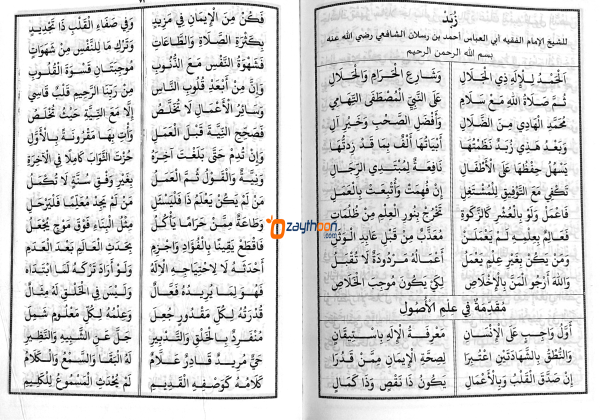 زُبَدْ
للشيخ الإمام الفقيه أبي العباس أحمد بن رسلان الشافعي رضي الله عنه
بسم الله الرحمن الرحيم
اَلْحَمْدُ لِلإِلٰهِ ذِي الْجَلَالِ وَشَارِعِ الْحَرَامِ وَالْحَلَالِ
ثُمَّ صَلَاةُ اللهِ مَعْ سَلَامِ عَلَى النَّبِيِّ الْمُصْطَفَى التِّهَامِي
مُحَمَّدِ الْهَادِي مِنَ الضَّلَالِ وَأَفْضَلِ الصَّحْبِ وَخَيْرِ آلِ
وَبَعْدُ هٰذِي زُبَدٌ نَظَمْتُهَا أَبْيَاتُهَا أَلْفٌ بِمَا قَدْ زِدْتُهَا
يَسْهُلُ حِفْظُهَا عَلَى الْأَطْفَالِ نَافِعَةٌ لِمُبْتَدِي الرِّجَالِ
تَكْفِي مَعَ التَّوْفِيقِ لِلْمُشْتَغِلِ إِنْ فُهِمَتْ وَأُتْبِعَتْ بِالْعَمَلِ
فَاعْمَلْ وَلَوْ بِالْعُشْرِ كَالزَّكَوةِ تَخْرُجْ بِنُورِ الْعِلْمِ مِنْ ظُلُمَاتِ
فَعَالِمٌ بِعِلْمِهِ لَمْ يَعْمَلَنْ مُعَذَّبٌ مِنْ قَبْلِ عَابِدِ الْوَثَنْ
وَكُلُّ مَنْ بِغَيْرِ عِلْمٍ يَعْمَلُ أَعْمَالُهُ مَرْدُودَةٌ لَا تُقْبَلُ
وَاللهَ أَرْجُو الْمَنَّ بِالْإِخْلَاصِ لِكَيْ يَكُونَ مُوجِبَ الْخَلَاصِ
مُقَدِّمَةٌ فِي عِلْمِ الْأُصُولِ
أَوَّلُ وَاجِبٍ عَلَى الْإِنْسَانِ مَعْرِفَةُ الْإِلٰهِ بِاسْتِيقَانِ
وَالنُّطْقُ بِالشَّهَادَتَيْنِ اعْتُبِرَا لِصِحَّةِ الْإِيمَانِ مِمَّنْ قَدَرَا
إِنْ صَدَّقَ الْقَلْبُ وَبِالْأَعْمَالِ يَكُونُ ذَا نَقْصٍ وَذَا كَمَالِ
فَكُنْ مِنَ الْإِيمَانِ فِي مَزِيدِ وَفِي صَفَاءِ الْقَلْبِ ذَا تَجْدِيدِ
بِكَثْرَةِ الصَّلَاةِ وَالطَّاعَاتِ وَتَرْكِ مَا لِلنَّفْسِ مِنْ شَهَوَاتِ
فَشَهْوَةُ النَّفْسِ مَعَ الذُّنُوبِ مُوجِبَتَانِ قَسْوَةَ الْقُلُوبِ
وَإِنَّ مِنْ أَبْعَدِ قُلُوبِ النَّاسِ مِنْ رَبِّنَا الرَّحِيمِ قَلْبٌ قَاسِي
وَسَائِرُ الْأَعْمَالِ لَا تُخَلَّصُ إِلَّا مَعَ النِّيَّةِ حَيْثُ تُخْلَصُ
فَصَحِّحِ النِّيَّةَ قَبْلَ الْعَمَلِ وَأْتِ بِهَا مَقْرُونَةً بِالْأَوَّلِ
وَإِنْ تَدُمْ حَتَّى بَلَغْتَ آخِرَهْ حُزْتَ الثَّوَابَ كَامِلًا فِي الْآخِرَةْ
وَنِيَّةٌ وَالْقَوْلُ ثُمَّ الْعَمَلُ بِغَيْرِ وَفْقِ سُنَّةٍ لَا تُكْمَلُ
مَنْ لَمْ يَكُنْ يَعْلَمُ ذَا فَلْيَسْئَلِ مَنْ لَمْ يَجِدْ مُعَلِّمًا فَلْيَرْحَلِ
وَطَاعَةٌ مِمَّنْ حَرَامًا يَأْكُلُ مِثْلُ الْبِنَاءِ فَوْقَ مَوْجٍ يُجْعَلُ
فَاقْطَعْ يَقِينًا بِالْفُؤَادِ وَاجْزِمِ بِحَدَثِ الْعَالَمِ بَعْدَ الْعَدَمِ
أَحْدَثَهُ لَا لِاحْتِيَاجِهِ الْإِلٰهُ وَلَوْ أَرَادَ تَرْكَهُ لَمَا ابْتَدَاهُ
فَهْوَ لِمَا يُرِيدُهُ فَعَّالُ وَلَيْسَ فِي الْخَلْقِ لَهُ مِثَالُ
قُدْرَتُهُ لِكُلِّ مَقْدُورٍ جُعِلْ وَعِلْمُهُ لِكُلِّ مَعْلُومٍ شَمِلْ
مُنْفَرِدٌ بِالْخَلْقِ وَالتَّدْبِيرِ جَلَّ عَنِ الشَّبِيهِ وَالنَّظِيرِ
حَيٌّ مُرِيدٌ قَادِرٌ عَلَّامُ لَهُ الْبَقَا وَالسَّمْعُ وَالْكَلَامُ
كَلَامُهُ كَوَصْفِهِ الْقَدِيمِ لَمْ يُحْدِثِ الْمَسْمُوعَ لِلْكَلِيمِ
zaythoon
.com